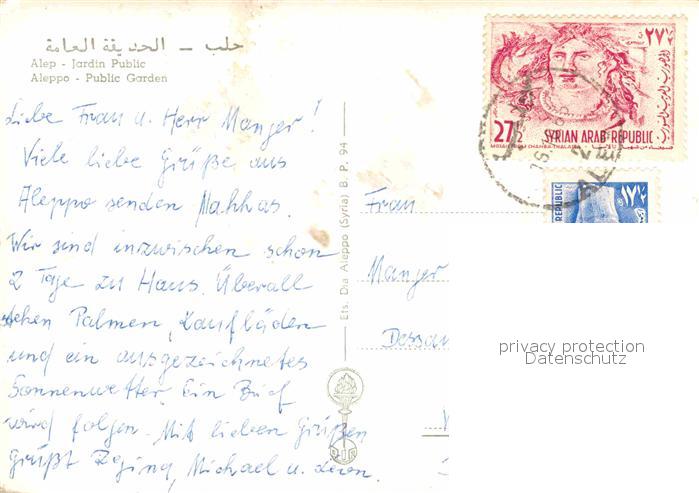 حلب – الحديقة العامة
Alep - Jardin Public
Aleppo - Public Garden
Liebe Frau u. Herr Manger!
Viele liebe Grüße aus
Aleppo senden Mahhas.
Wir sind inzwischen schon
2 Tage zu Haus. Überall
stehen Palmen, Kaufläden
und ein ausgezeichnetes
Sonnenwetter. Ein Brief
wird folgen. Mit lieben Grüßen
grüßt Regina, Michael u.
Ets. Dia Aleppo (Syria) B. P. 94
27½
SYRIAN ARAB REPUBLIC
٢٧½
REPUBLIC
١٧½
Frau
Manger
Dessau
privacy protection
Datenschutz